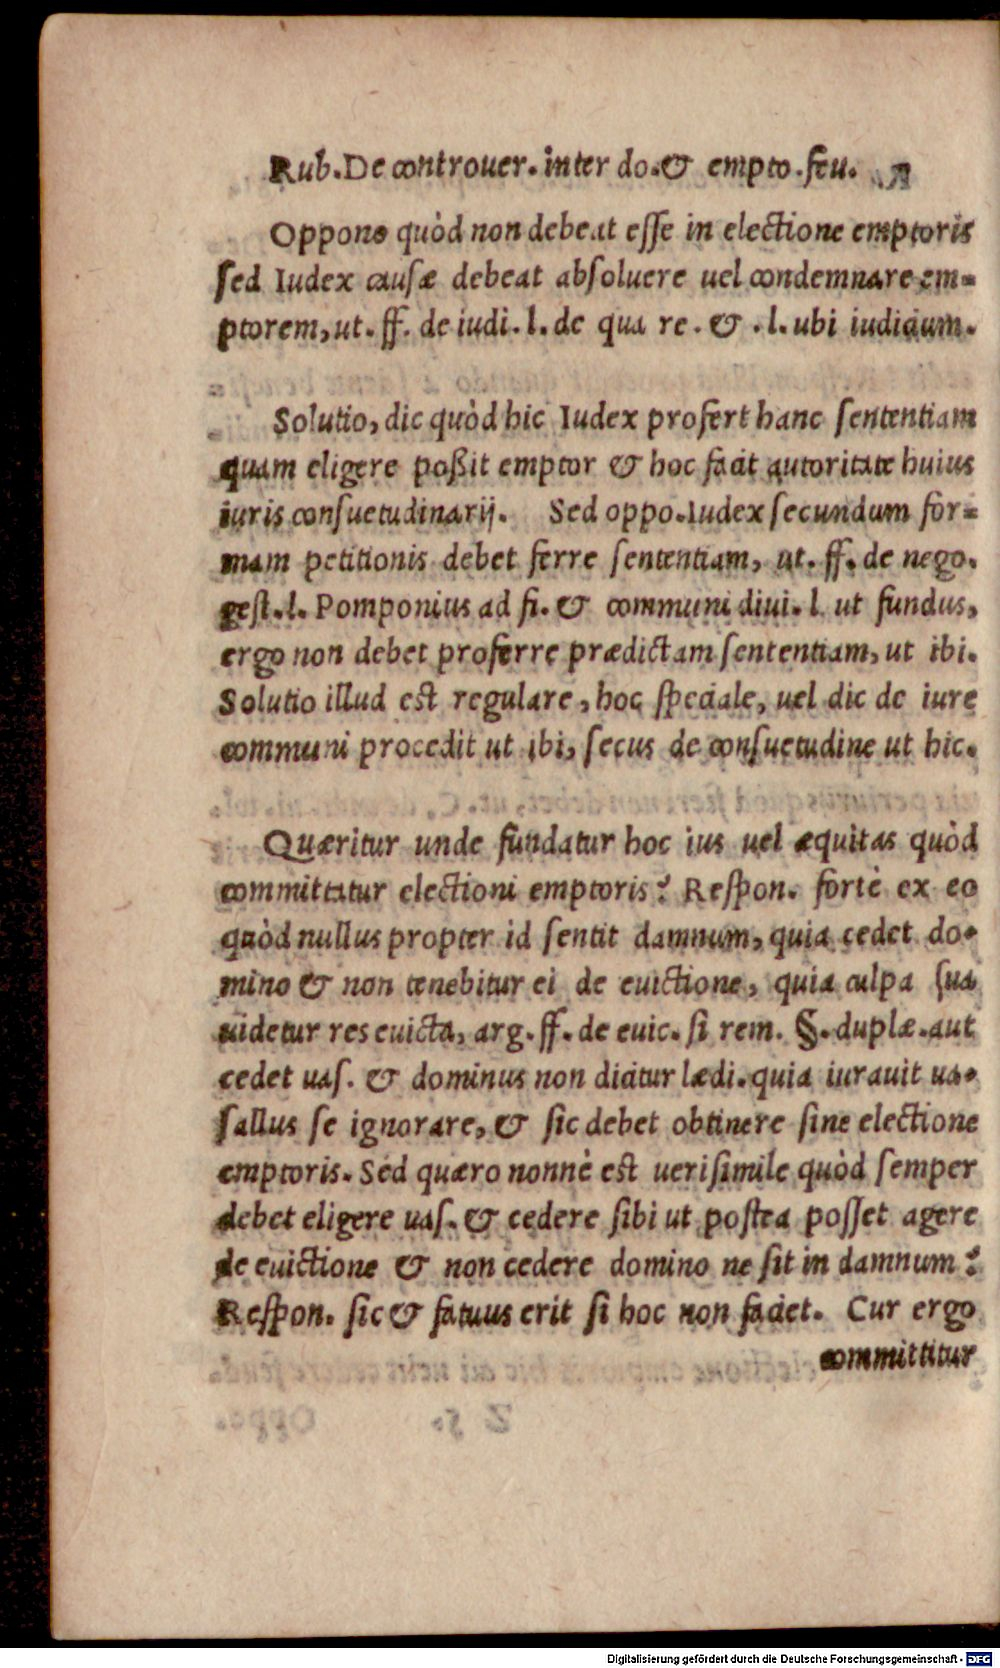 Rub. De controuer. inter do. & empto. feu.
Oppono quòd non debeat esse in electione emptoris
sed Iudex causæ debeat absoluere uel condemnare em-
ptorem, ut. ff. de iudi. l. de qua re. & . l. ubi iudicium.
Solutio, dic quòd hic Iudex profert hanc sententiam
quam eligere poßit emptor & hoc facit autoritate huius
iuris consuetudinarij. Sed oppo. Iudex secundum for-
mam petitionis debet ferre sententiam, ut. ff. de nego.
gest. l. Pomponius ad fi. & communi diui. l. ut fundus,
ergo non debet proferre prædictam sententiam, ut ibi.
Solutio illud est regulare, hoc speciale, uel dic de iure
communi procedit ut ibi, secus de consuetudine ut hic.
Quæritur unde fundatur hoc ius uel æquitas quòd
committatur electioni emptoris? Respon. fortè ex eo
quòd nullus propter id sentit damnum, quia cedet do-
mino & non tenebitur ei de euictione, quia culpa sua
uidetur res euicta, arg. ff. de euic. si rem. §. duplæ. aut
cedet uas. & dominus non dicitur lædi. quia iurauit ua-
sallus se ignorare, & sic debet obtinere sine electione
emptoris. Sed quæro nonnè est uerisimile quòd semper
debet eligere uas. & cedere sibi ut postea posset agere
de euictione & non cedere domino ne sit in damnum?
Respon. sic & fatuus erit si hoc non faciet. Cur ergo
committitur
Digitalisierung gefördert durch die Deutsche Forschungsgemeinschaft - DFG